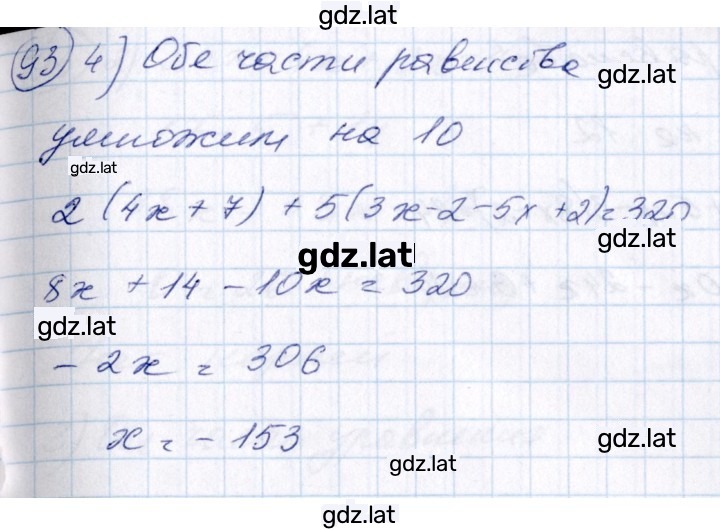 gdz.lat
93 4) Обе части равенства
gdz.lat
умножим на 10
gdz.lat
2 (4x + 7) + 5(3x - 2 - 5x + 2) = 320
gdz.lat
gdz.lat
8x + 14 - 10x = 320
gdz.lat
- 2x = 306
x = - 153
gdz.lat
gdz.lat
gdz.lat